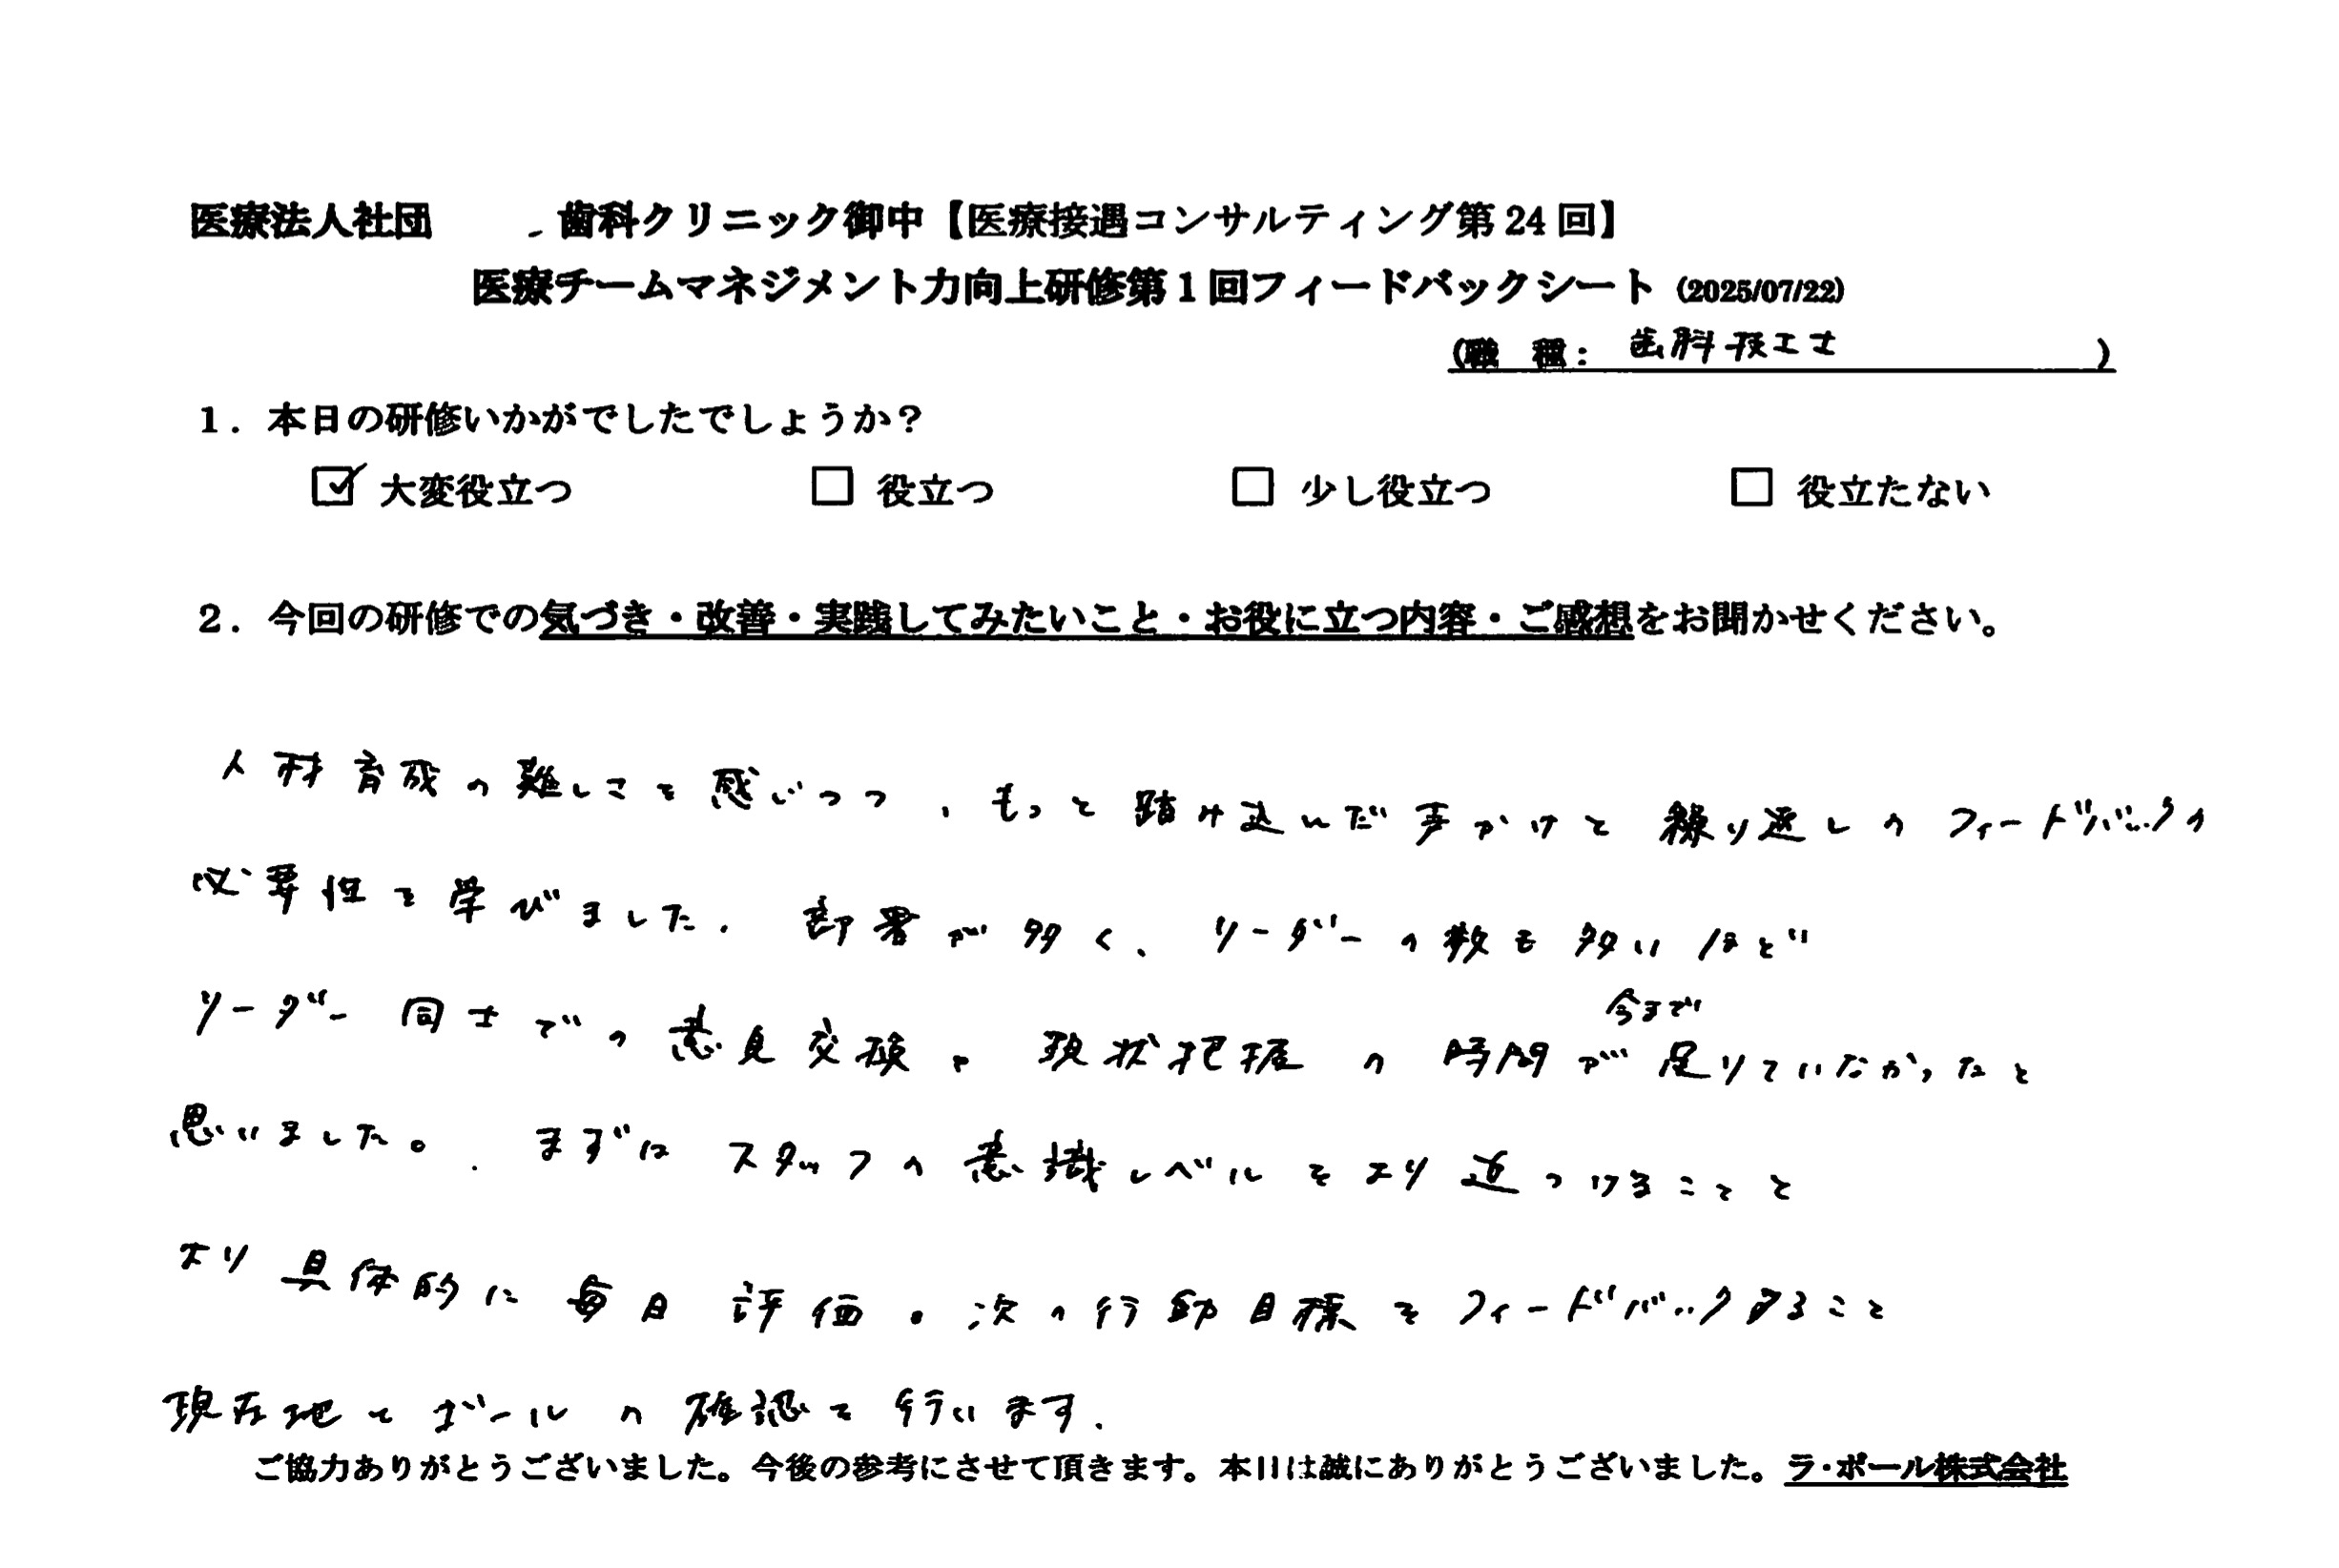 医療法人社団 歯科クリニック御中【医療接遇コンサルティング第24回】
医療チームマネジメント力向上研修第1回フィードバックシート (2025/07/22)
(職 種: 歯科技工士 )
1. 本日の研修いかがでしたでしょうか?
☑ 大変役立つ □ 役立つ □ 少し役立つ □ 役立たない
2. 今回の研修での気づき・改善・実践してみたいこと・お役に立つ内容・ご感想をお聞かせください。
人材育成の難しさを感じつつ、もっと踏み込んだ声かけと繰り返しのフィードバックの
必要性を学びました. 部署が多く、リーダーの数も多いほど
今まで
リーダー同士での意見交換・現状把握の時間が足りていなかったと
思いました。まずはスタッフの意識レベルをより近つけることと
より具体的に毎日評価・次の行動目標をフィードバックすること
現在地とゴールの確認を行います.
ご協力ありがとうございました。今後の参考にさせて頂きます。本日は誠にありがとうございました。ラ・ポール株式会社